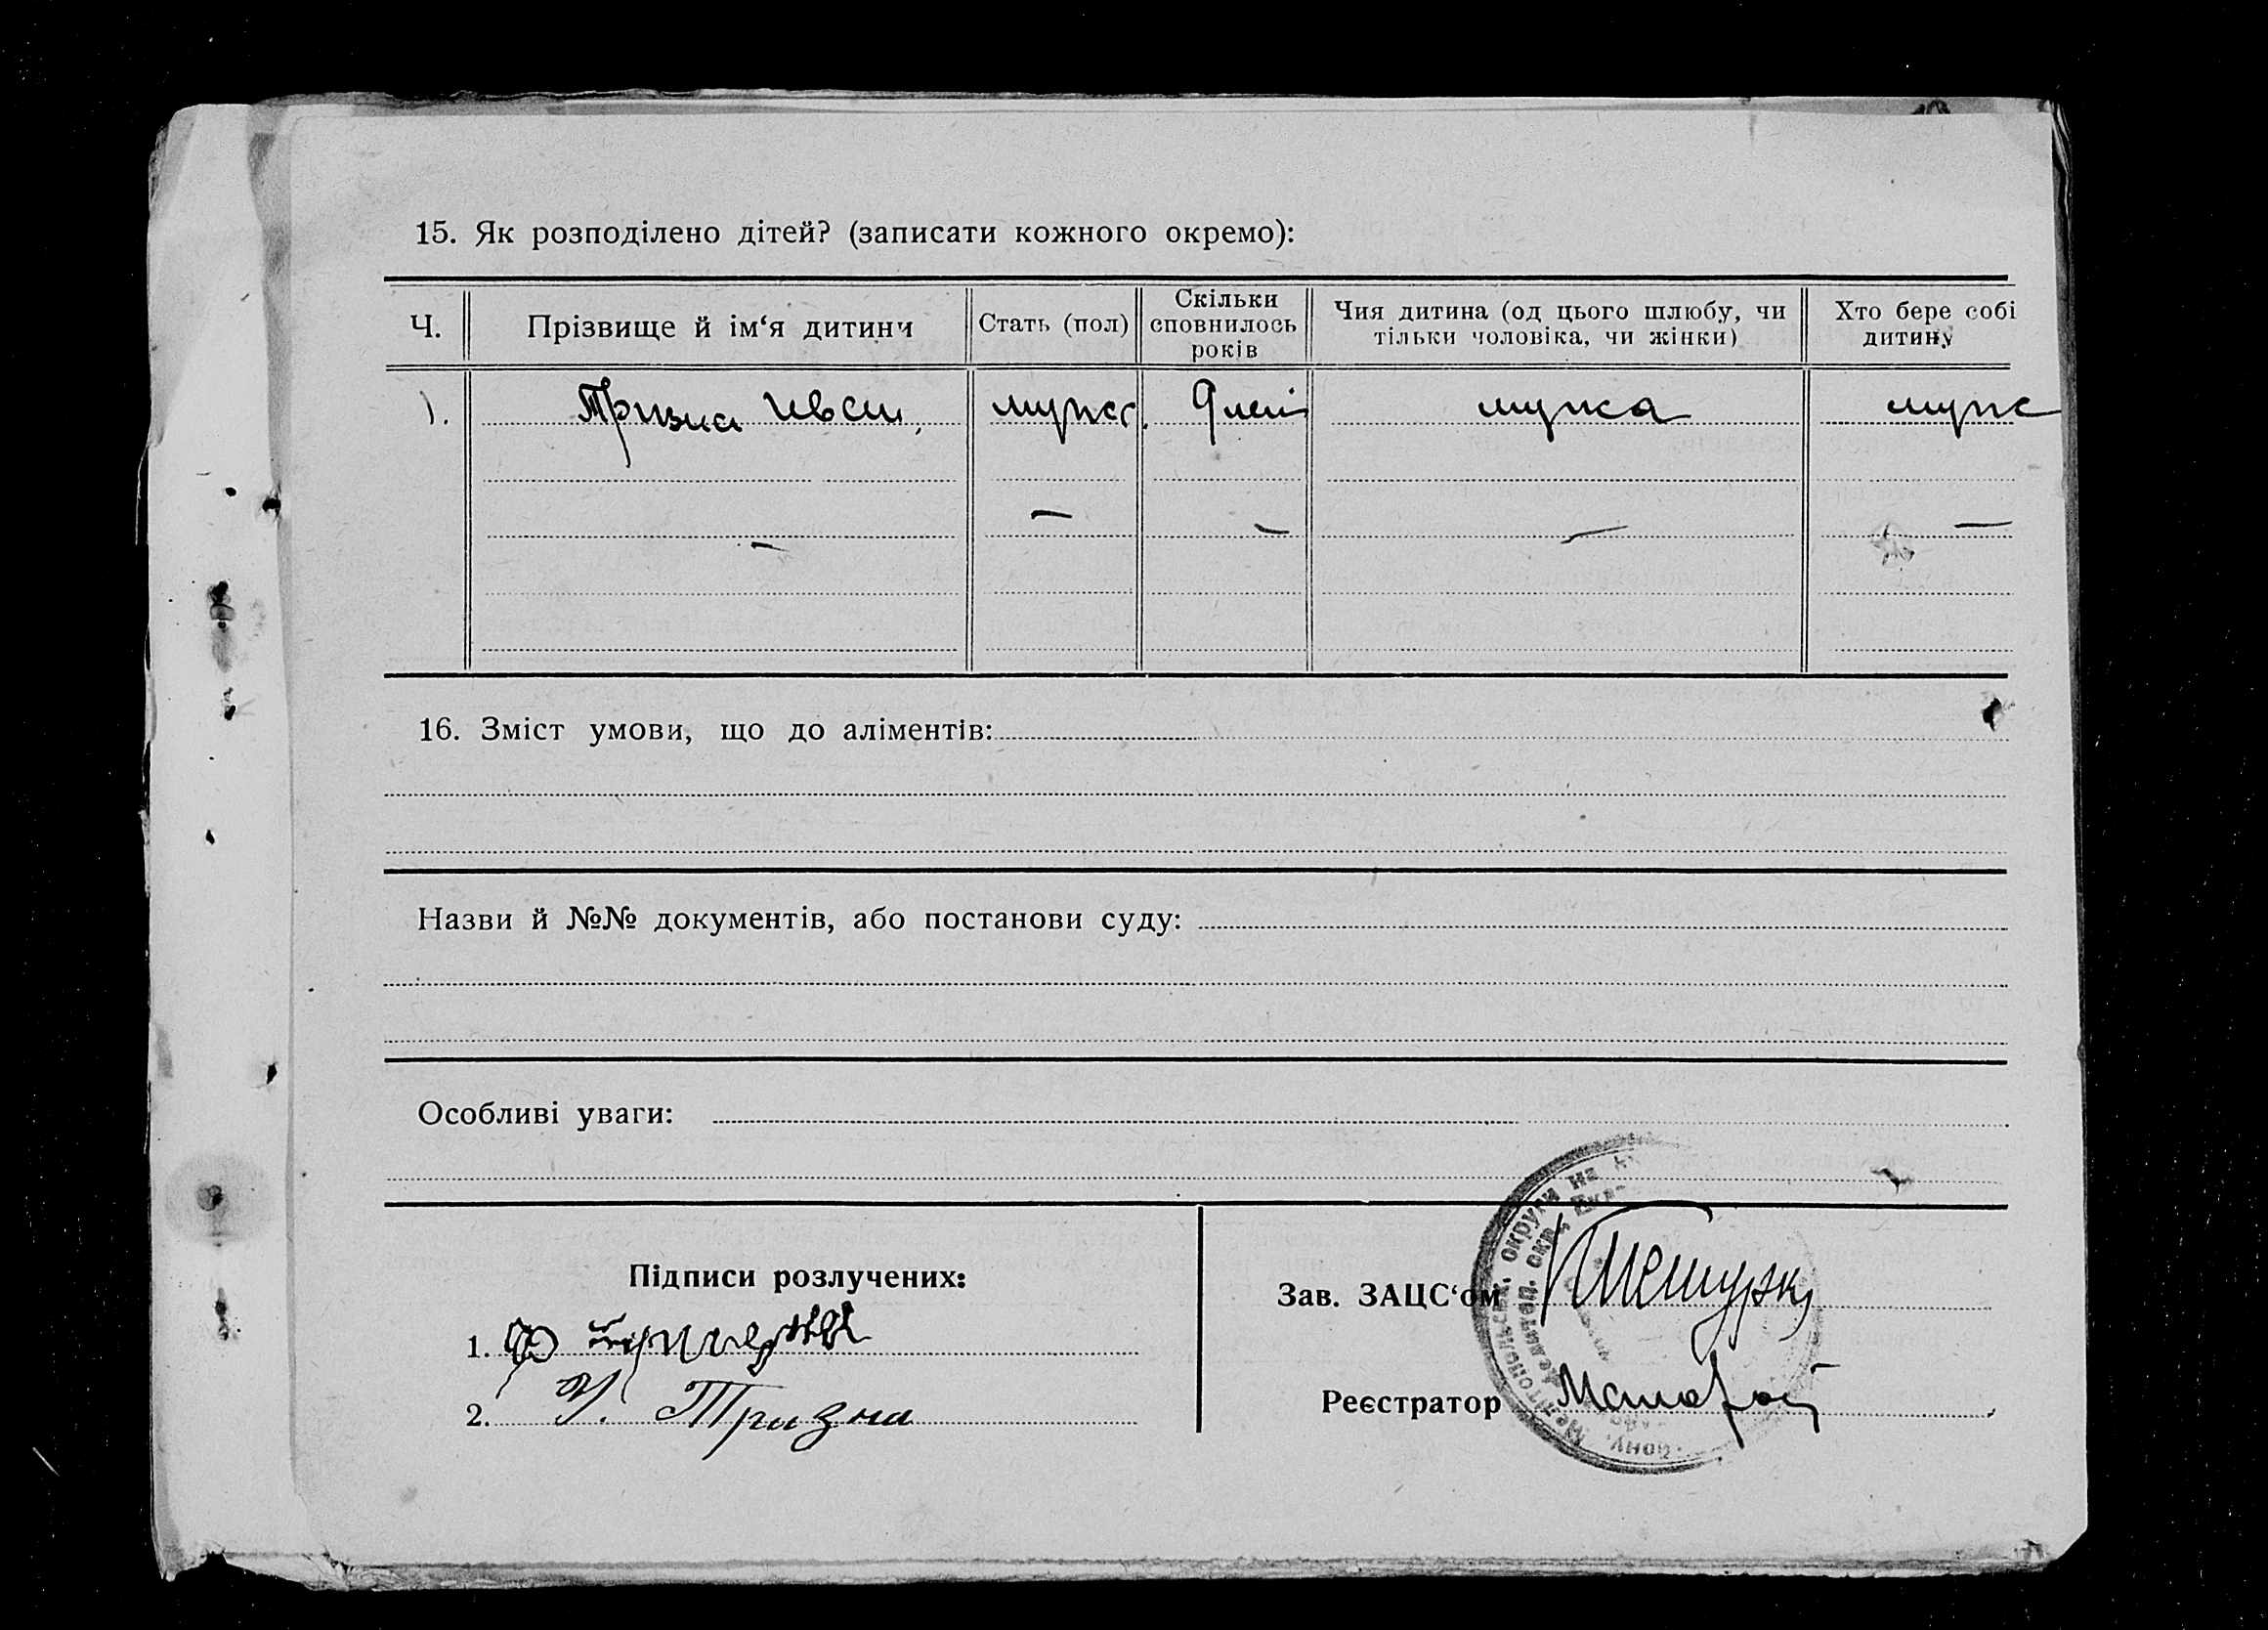 15. Як розподілено дітей? (записати кожного окремо):
Ч. Прізвище й ім‘я дитини Стать (пол) Скільки сповнилось років Чия дитина (од цього шлюбу, чи тільки чоловіка, чи жінки) Хто бере собі дитину
1). Тризна Иван, мужс. 9 лет мужа муж
16. Зміст умови, що до аліментів:
Назви й №№ документів, або постанови суду:
Особливі уваги:
Підписи розлучених:
1.
2. Тризна
Зав. ЗАЦС‘ом
Реєстратор